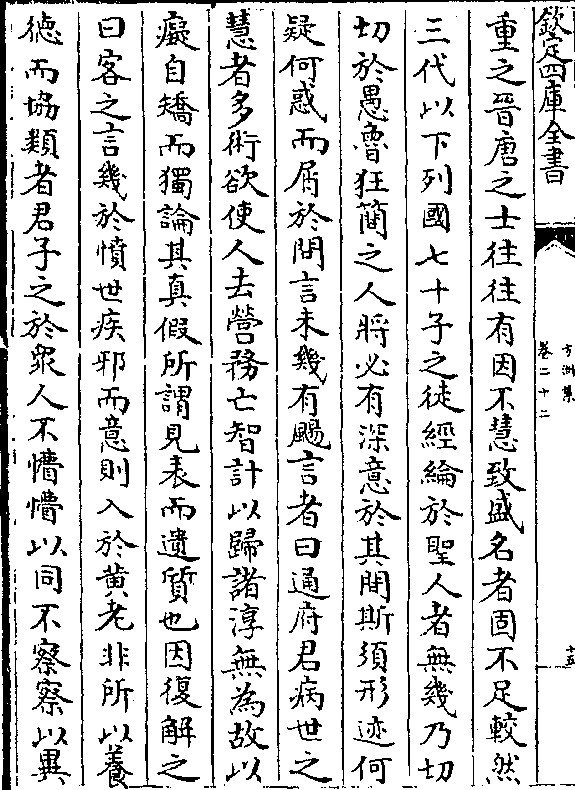 欽定四庫全書
方洲集
卷二十二
十五
重之晉唐之士往往有因不慧致盛名者固不足較然
三代以下列國七十子之徒經綸於聖人者無幾乃切
切於愚魯狂簡之人將必有深意於其間斯須形迹何
疑何惑而屑於問言未幾有颺言者曰通府君病世之
慧者多術欲使人去營務亡智計以歸諸淳無為故以
癡自矯而獨論其真假所謂見表而遺質也因復解之
曰客之言幾於憤世疾邪而意則入於黄老非所以養
徳而協類者君子之於衆人不懵懵以同不察察以異